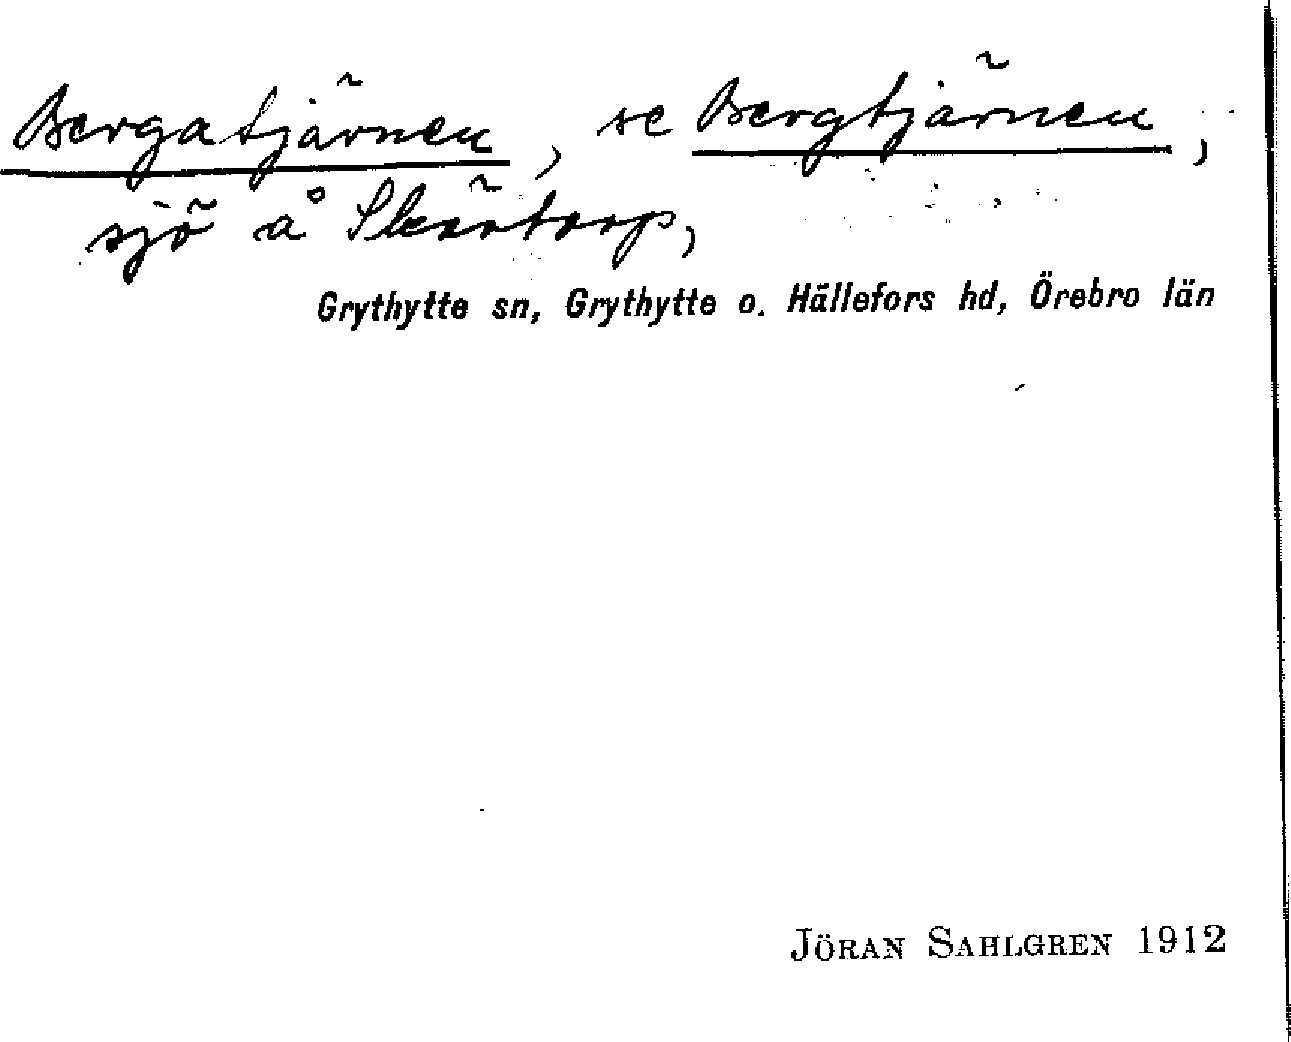 Bergatjärnen, se Bergtjärnen,
sjö å Skärtorp,
Grythytte sn, Grythytte o. Hällefors hd, Örebro län
JÖRAN SAHLGREN 1912